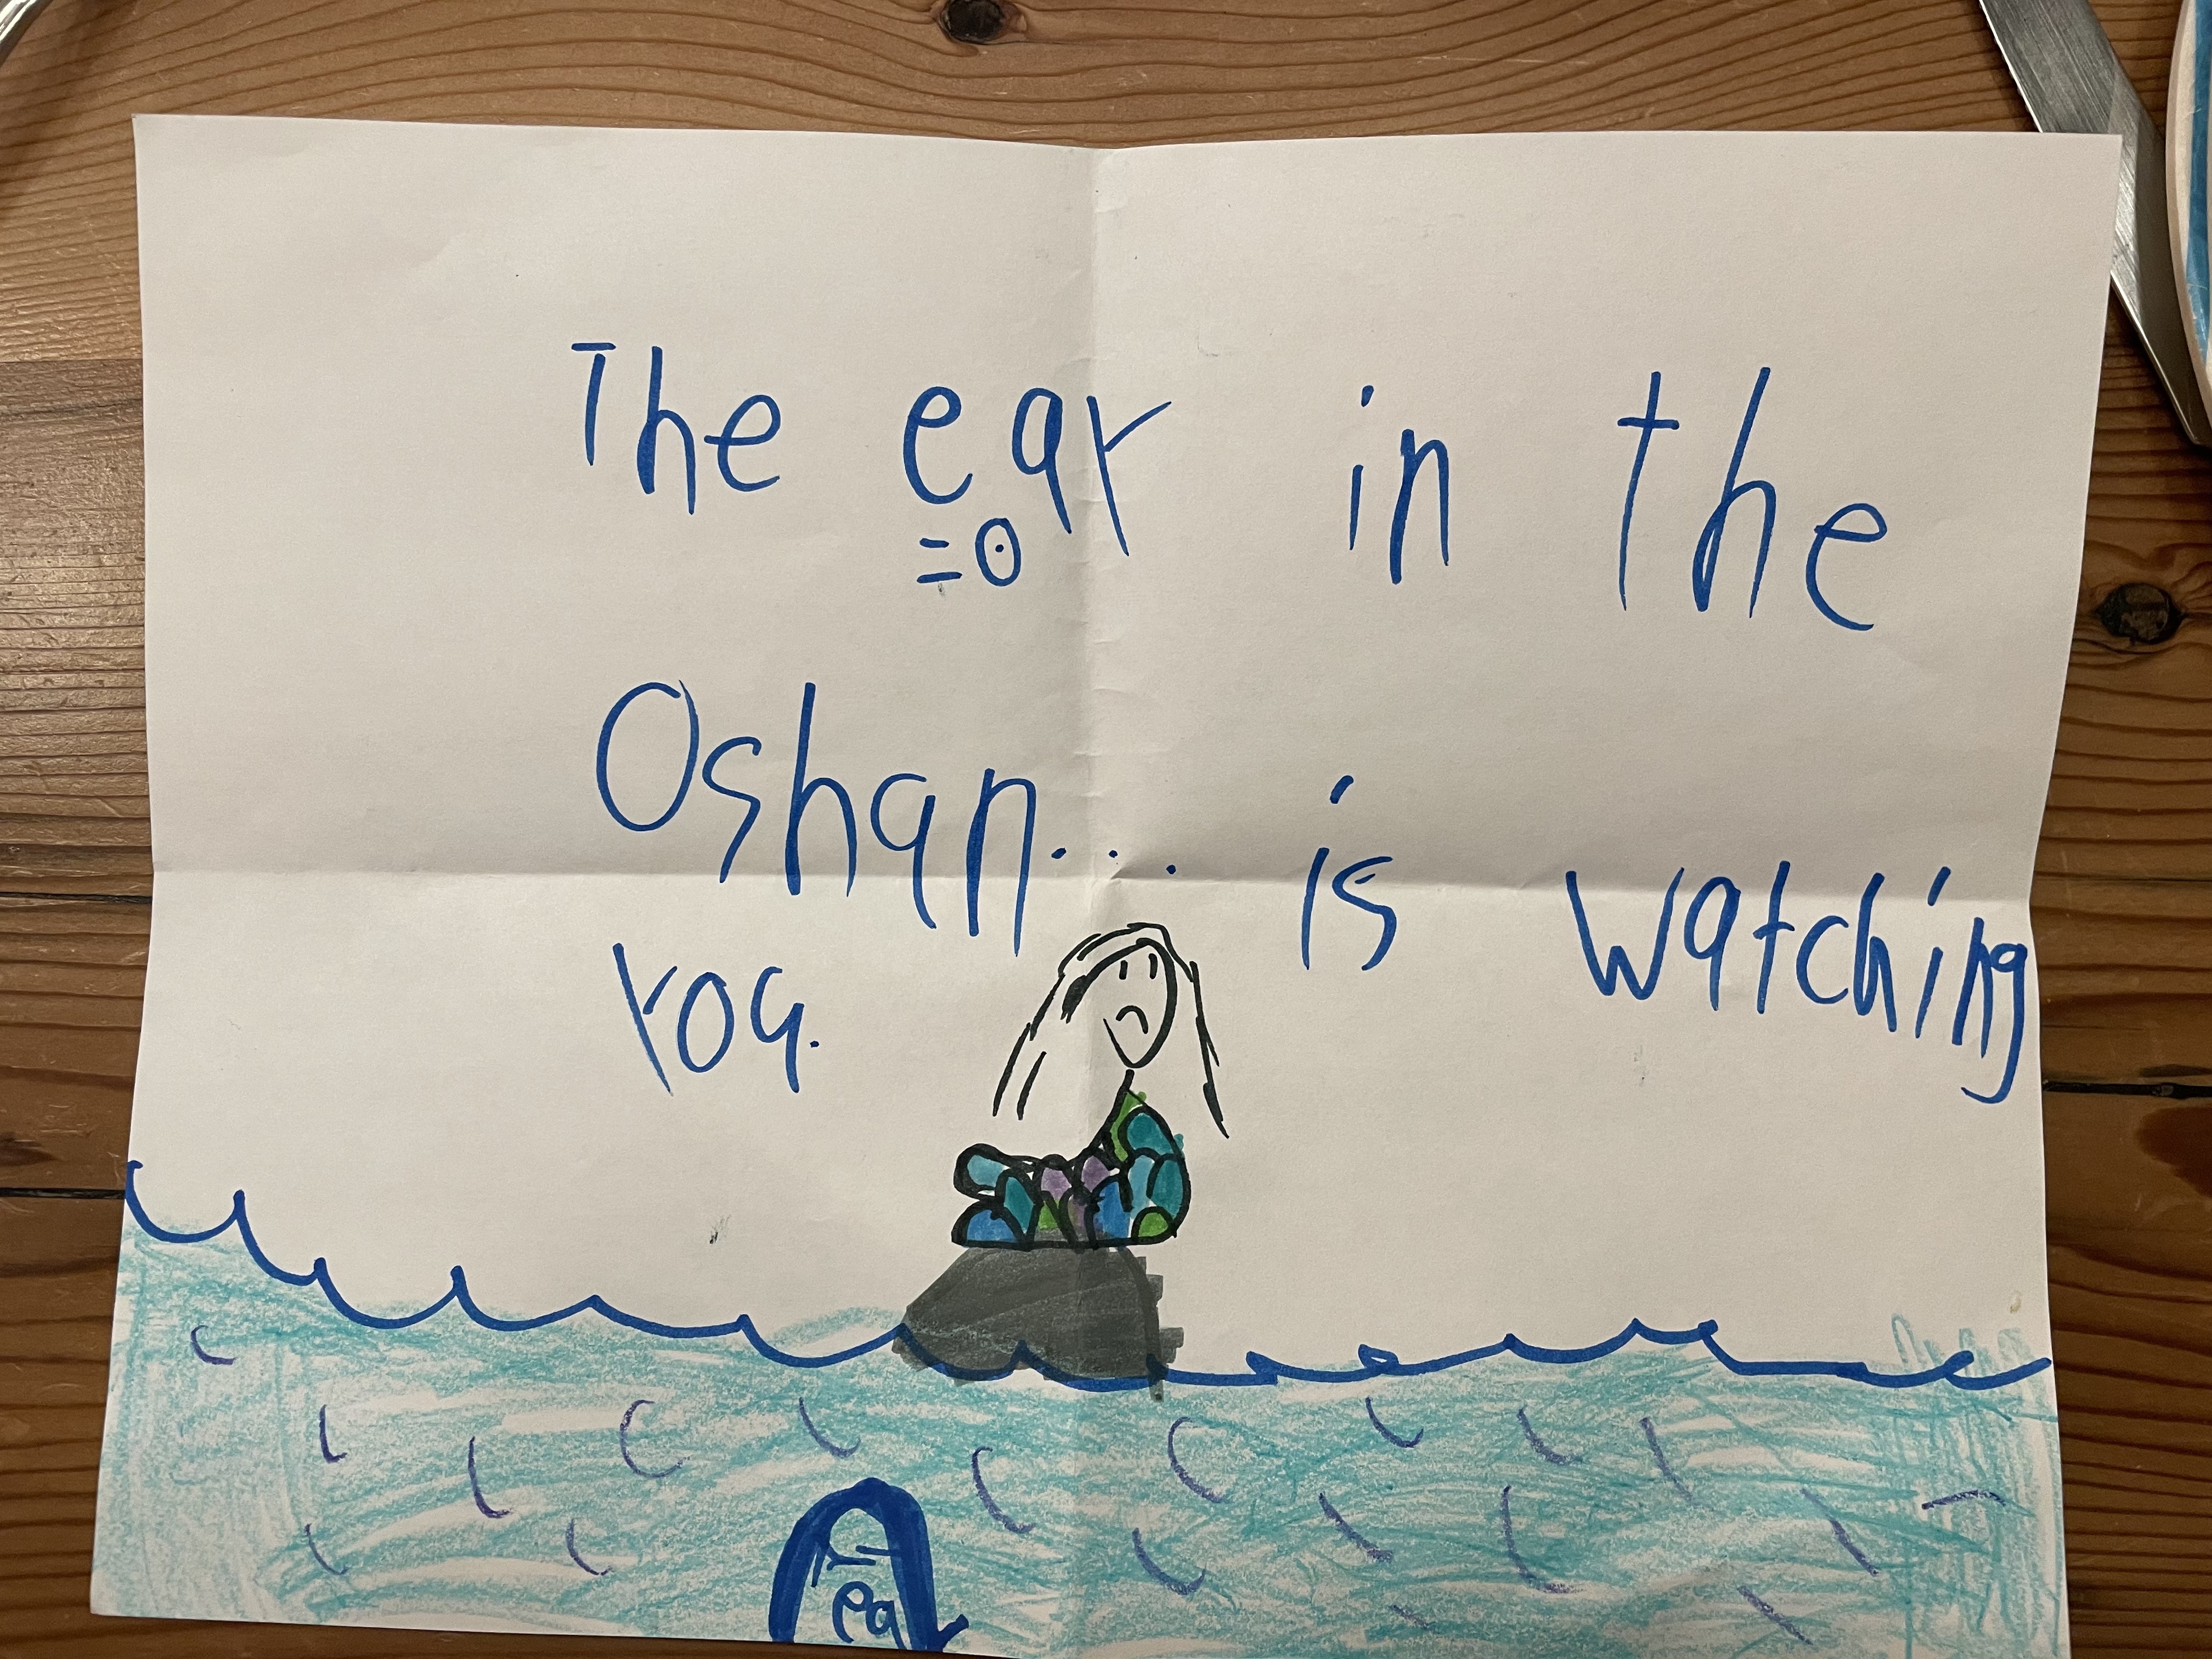 The ear in the
=0
Oshan... is watching
you.
ea